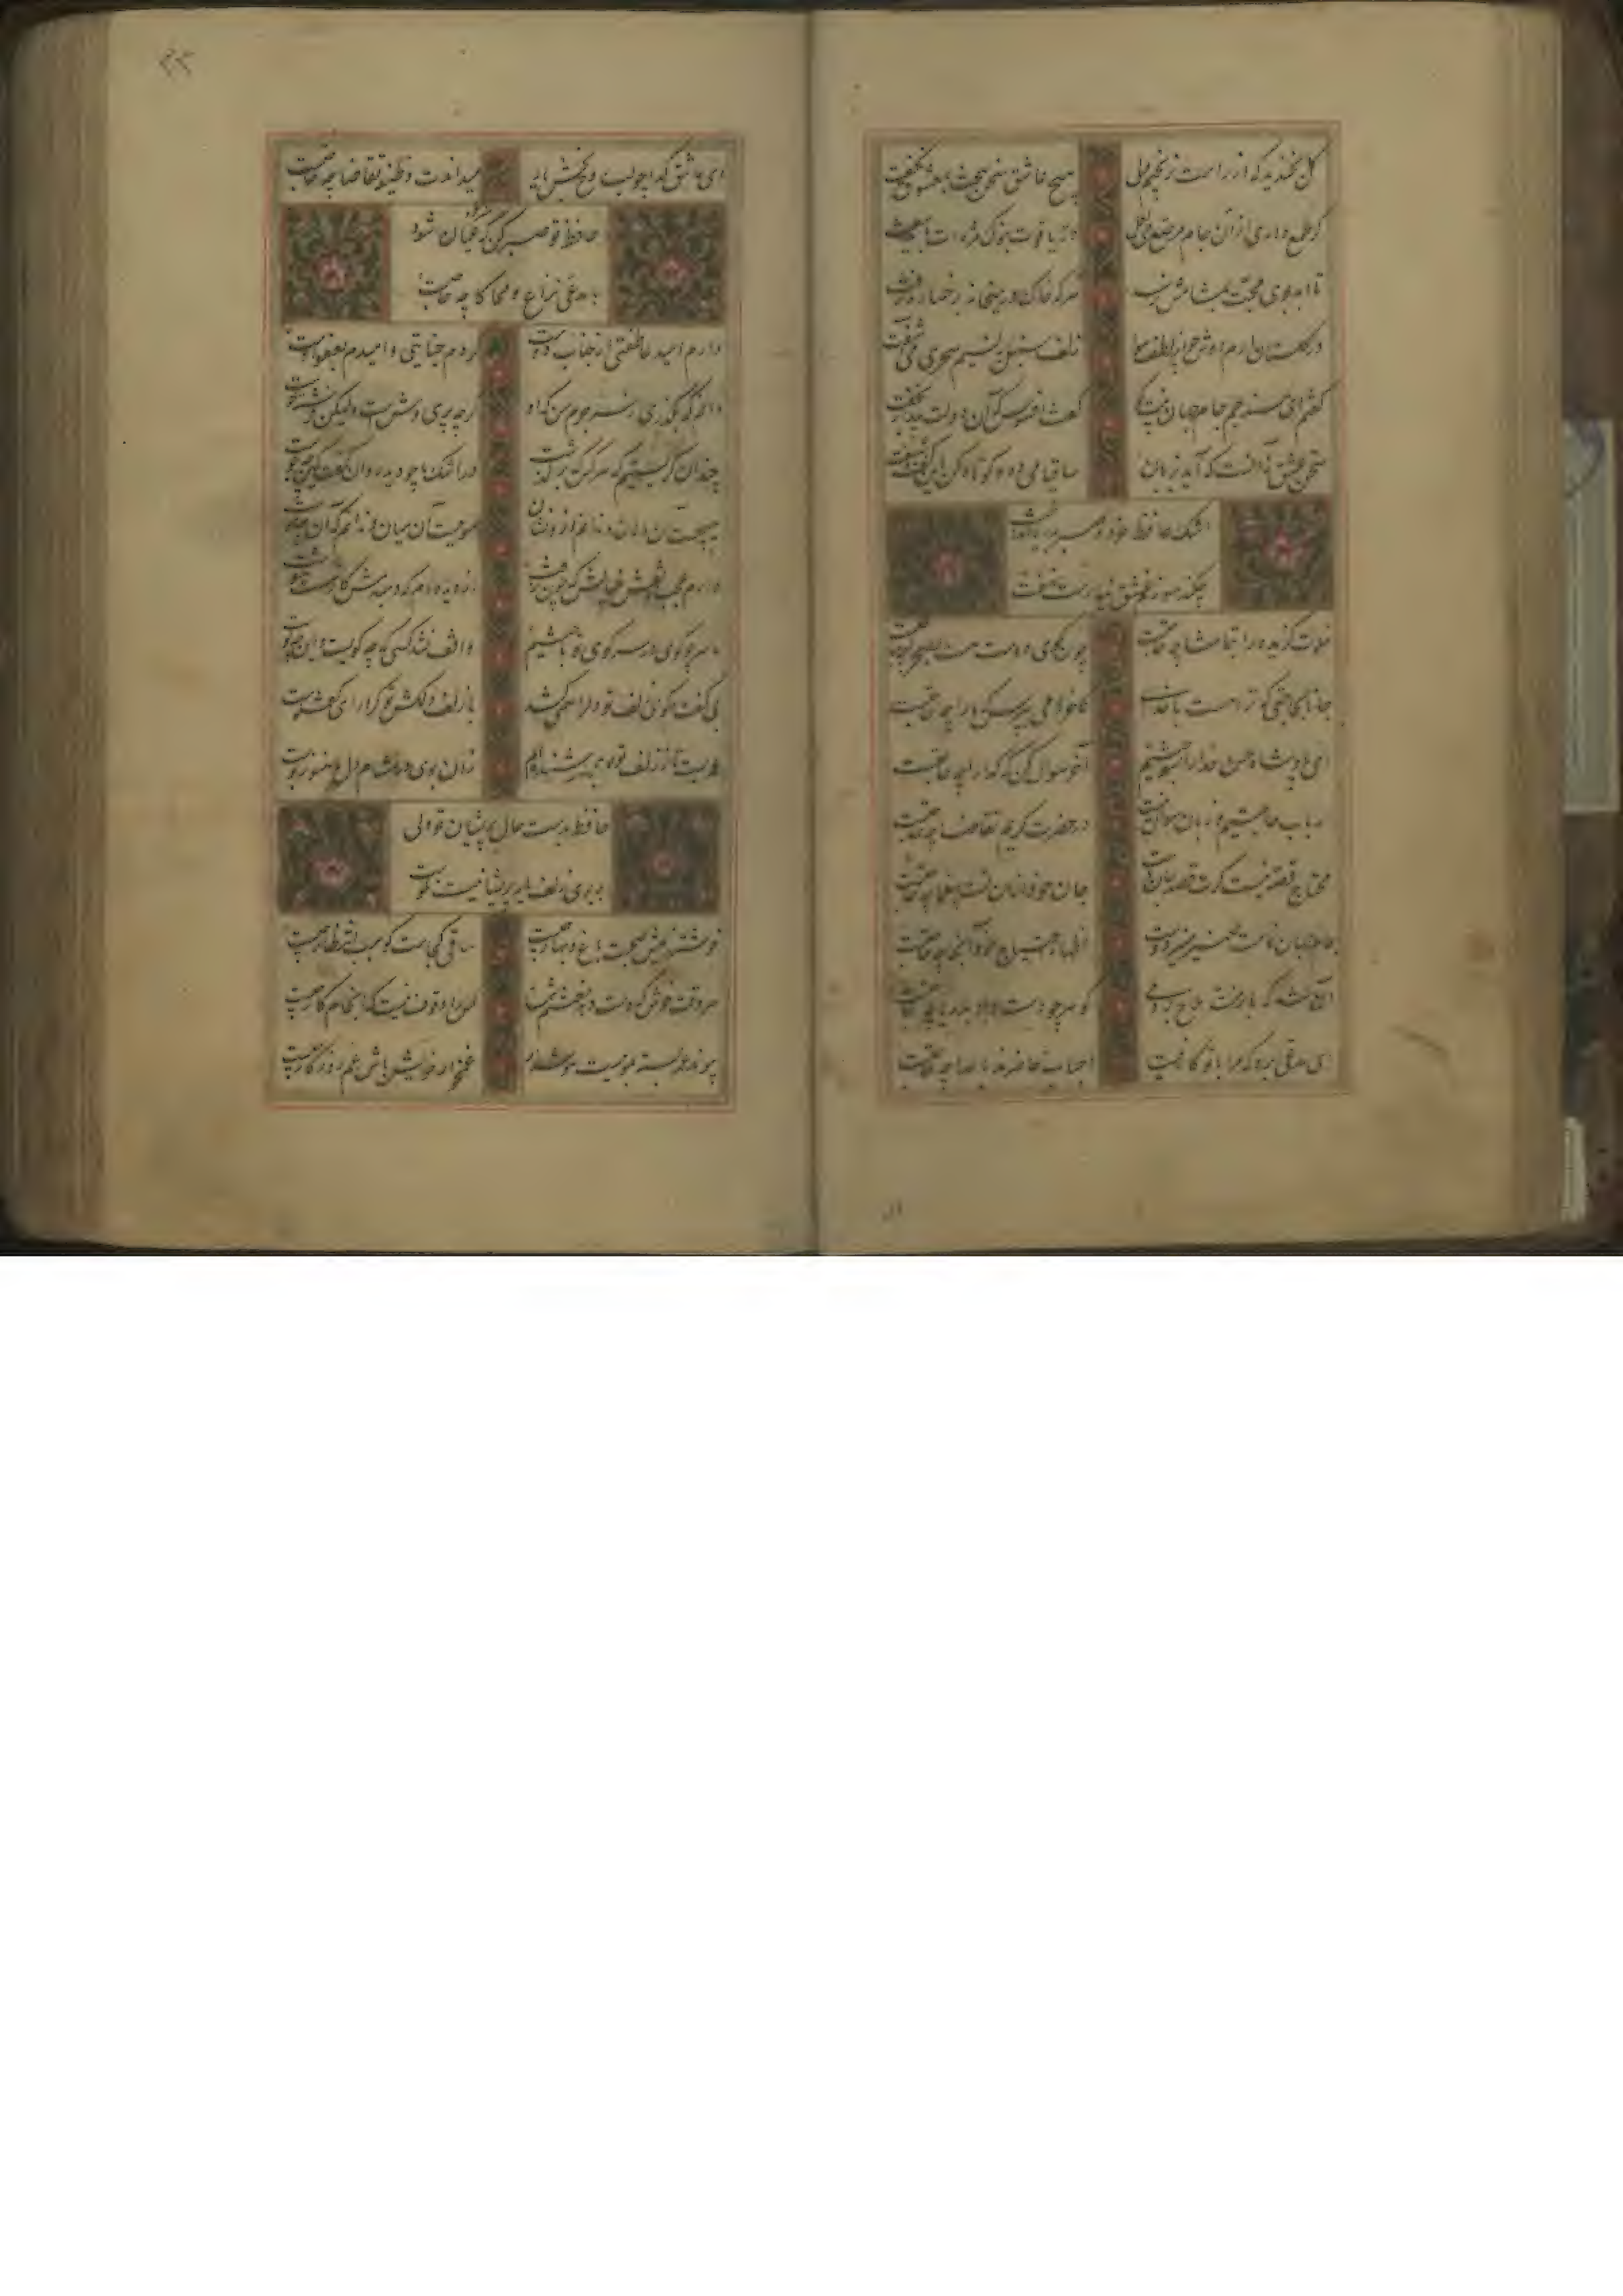 گل بخندید که از راست نرنجیم ولی هیچ عاشق سخن سخت بمعشوق نگفت
گر طمع داری از آن جام مرصع می لعل در و یاقوت بنوک مژه ات باید سفت
تا ابد بوی محبت بمشامش نرسد هر که خاک در میخانه برخسار نرفت
در گلستان ارم دوش چو از لطف هوا زلف سنبل بنسیم سحری می آشفت
گفتم ای مسند جم جام جهان بینت کو گفت افسوس که آن دولت بیدار بخفت
سخن عشق نه آنست که آید بزبان ساقیا می ده و کوتاه کن این گفت و شنفت
اشک حافظ خرد و صبر بدریا انداخت
چکند سوز غم عشق نیارست نهفت
خلوت گزیده را بتماشا چه حاجت چون کوی دوست هست بصحرا چه حاجت
جانا بحاجتی که ترا هست با خدای کاخر دمی بپرس که ما را چه حاجت
ای پادشاه حسن خدا را بسوختیم آخر سوال کن که گدا را چه حاجت
ارباب حاجتیم و زبان سوال نیست در حضرت کریم تقاضا چه حاجت
محتاج قصه نیست گرت قصد جان ماست چون رخت از آن تست بیغما چه حاجت
جام جهان نماست ضمیر منیر دوست اظهار احتیاج خود آنجا چه حاجت
آن شد که بار منت ملاح بردمی گوهر چو دست داد بدریا چه حاجت
ای مدعی برو که مرا با تو کار نیست احباب حاضرند باعدا چه حاجت
ای عاشق گدا چو لب روح بخش یار میداندت وظیفه تقاضا چه حاجت
حافظ تو صبر کن که هنر خود عیان شود
با مدعی نزاع و محاکا چه حاجت
دارم امید عاطفتی از جناب دوست کردم جنایتی و امیدم بعفو اوست
دانم که بگذرد ز سر جرم من که او گرچه پری وشست ولیکن فرشته خوست
چندان گریستیم که هر کس که برگذشت در اشک ما چو دید روان گفت کین چه جوست
هیچست آن دهان و ندانم ازو نشان مویست آن میان و ندانم که آن چه موست
دارم عجب ز نقش خیالش که چون نرفت از دیده ام که دم بدمش کار شست و شوست
ما سر چو گوی در سر کوی تو باختیم واقف نشد کسی که چه گویست و این چه کوست
بی گفت و گوی زلف تو دل را همی کشد با زلف دلکش تو کرا رای گفتگوست
عمریست تا ز زلف تو بویی شنیده ام زان بوی در مشام دل من هنوز بوست
حافظ بدست حال پریشان تو ولی
بر بوی زلف یار پریشانیت نکوست
خوشتر ز عیش و صحبت باغ و بهار چیست ساقی کجاست گو سبب انتظار چیست
هر وقت خوش که دست دهد مغتنم شمار کس را وقوف نیست که انجام کار چیست
پیوند عمر بسته بموییست هوش دار غمخوار خویش باش غم روزگار چیست